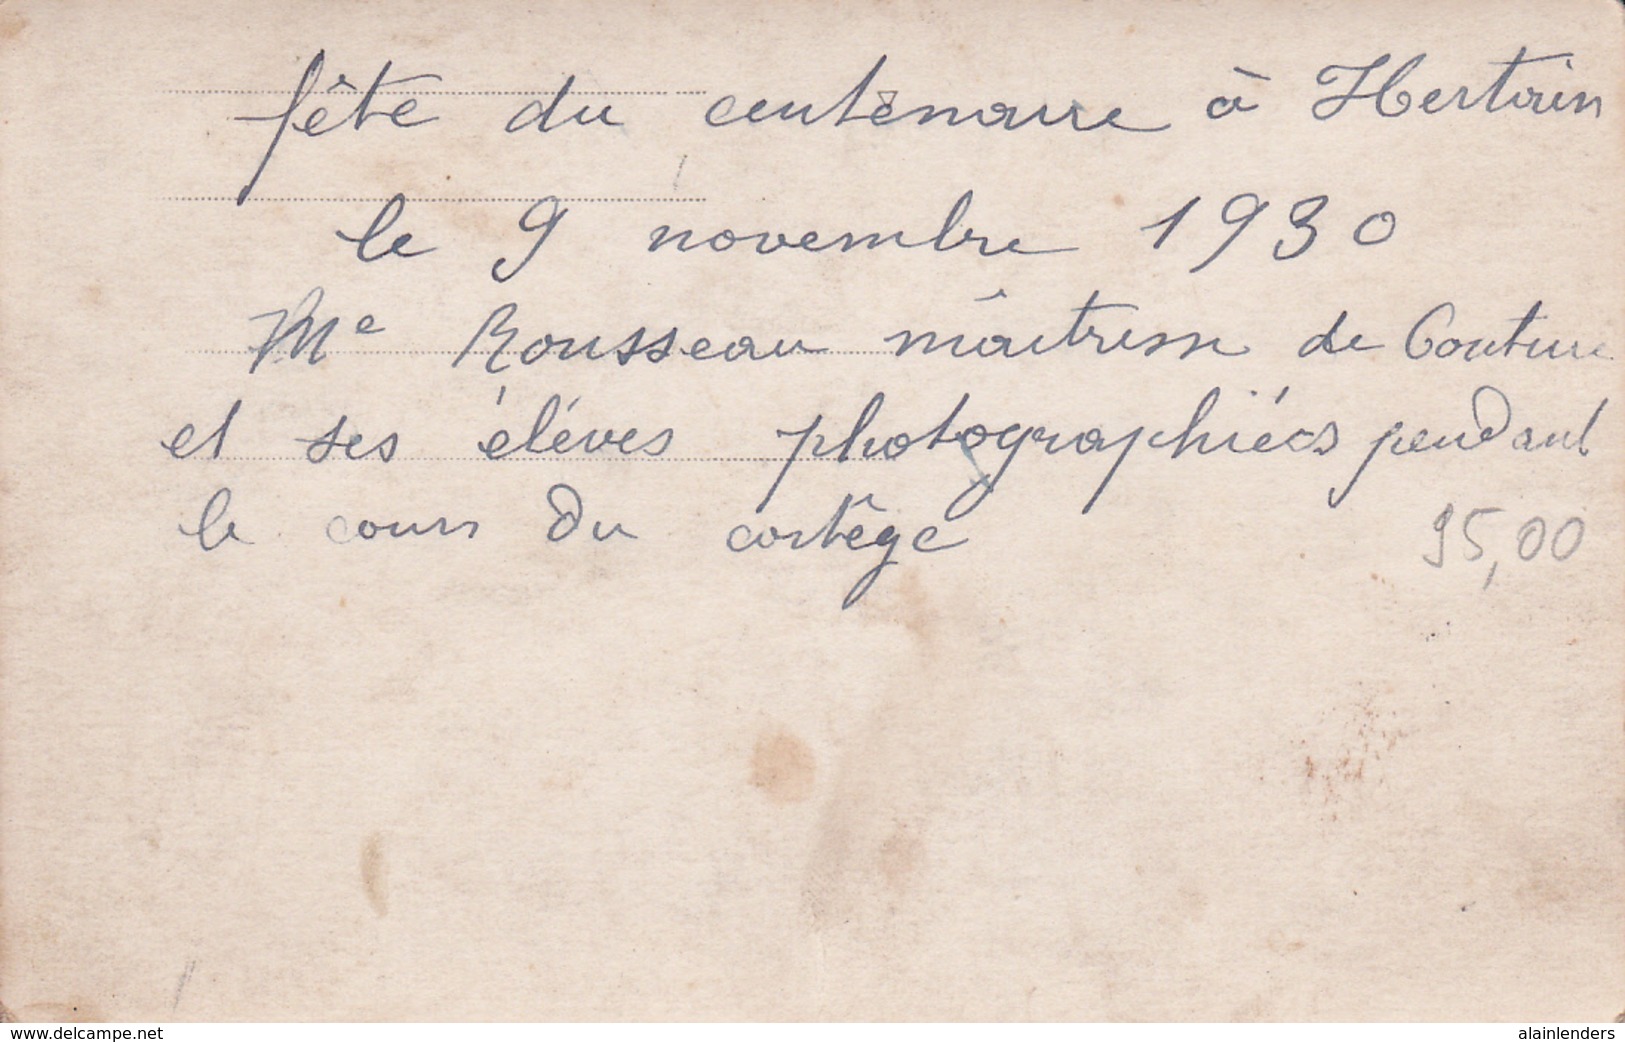 fête du centenaire à Hertain
le 9 novembre 1930
Me Rousseau maîtresse de Couture
et ses élèves photographiées pendant
le cours du cortège
95,00
www.delcampe.net
alainlenders